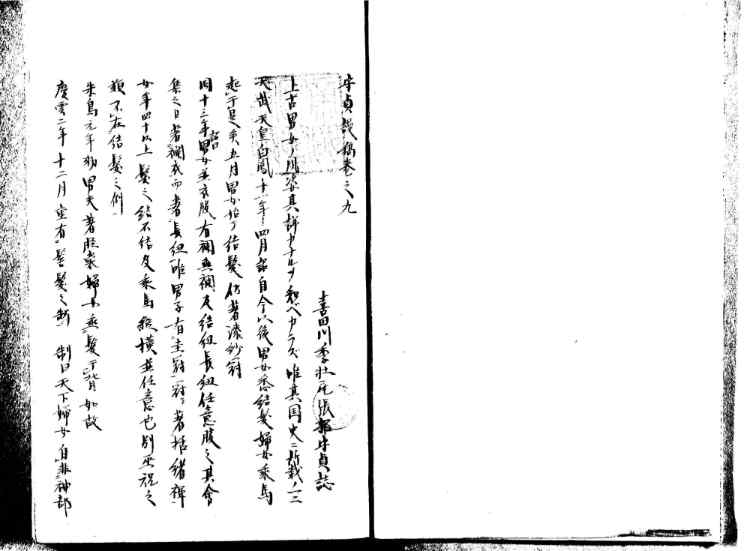 守貞謾稿巻之九
喜田川季荘尾張部守貞誌
上古男女ノ用姿其詳カナルヲ知ベカラズ唯其国史ニ所載ノ三
天武天皇白鳳十一年四月詔自今以後男女悉結髪婦女乗馬
起于是矣五月男女始テ結髪仍著漆紗冠
同十三年詔男女並衣服有襴無襴及結紐長紐任意服之其會
集之日着襴衣而著長紐唯男子有圭冠冠而著括緒褌
女年四十以上髪之結不結及乗馬縦横並任意也別巫祝之
類不在結髪之例
朱鳥元年勅男夫著脛裳婦女垂髪于背如故
慶雲二年十二月重有髻髪之制 制曰天下婦女自非神部